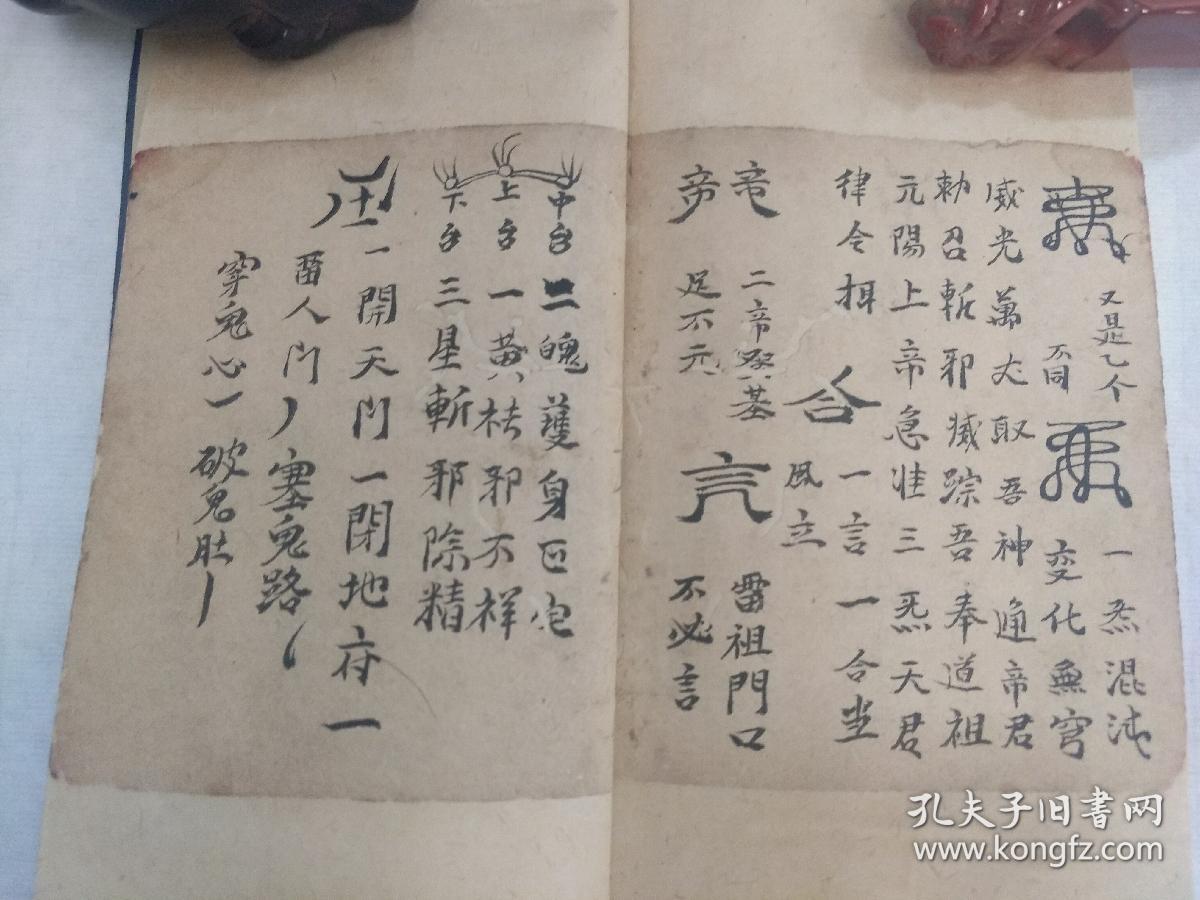 又是乙个
不同
一炁混沌
变化無穹
威光萬丈取吾神通帝君
勅召斬邪滅踪吾奉道祖
元陽上帝急准三炁天君
律令揖
合
一言一合坐
風立
竜
二帝登基
雷祖門口
帝
足不元
不必言
中台二魄護身
上台一黄祛邪不祥
下台三星斬邪除精
一開天门一閉地府一
畱人门丿塞鬼路
穿鬼心一破鬼肚丨
孔夫子旧书网
www.kongfz.com